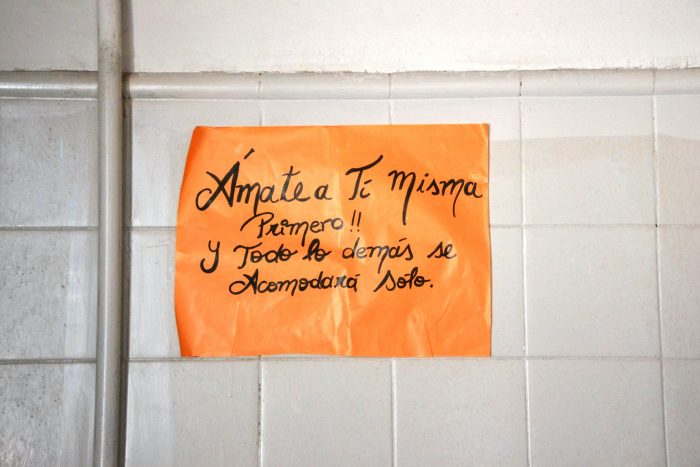 Ámate a Tí Misma
Primero!!
Y Todo lo demás se
Acomodará Solo.